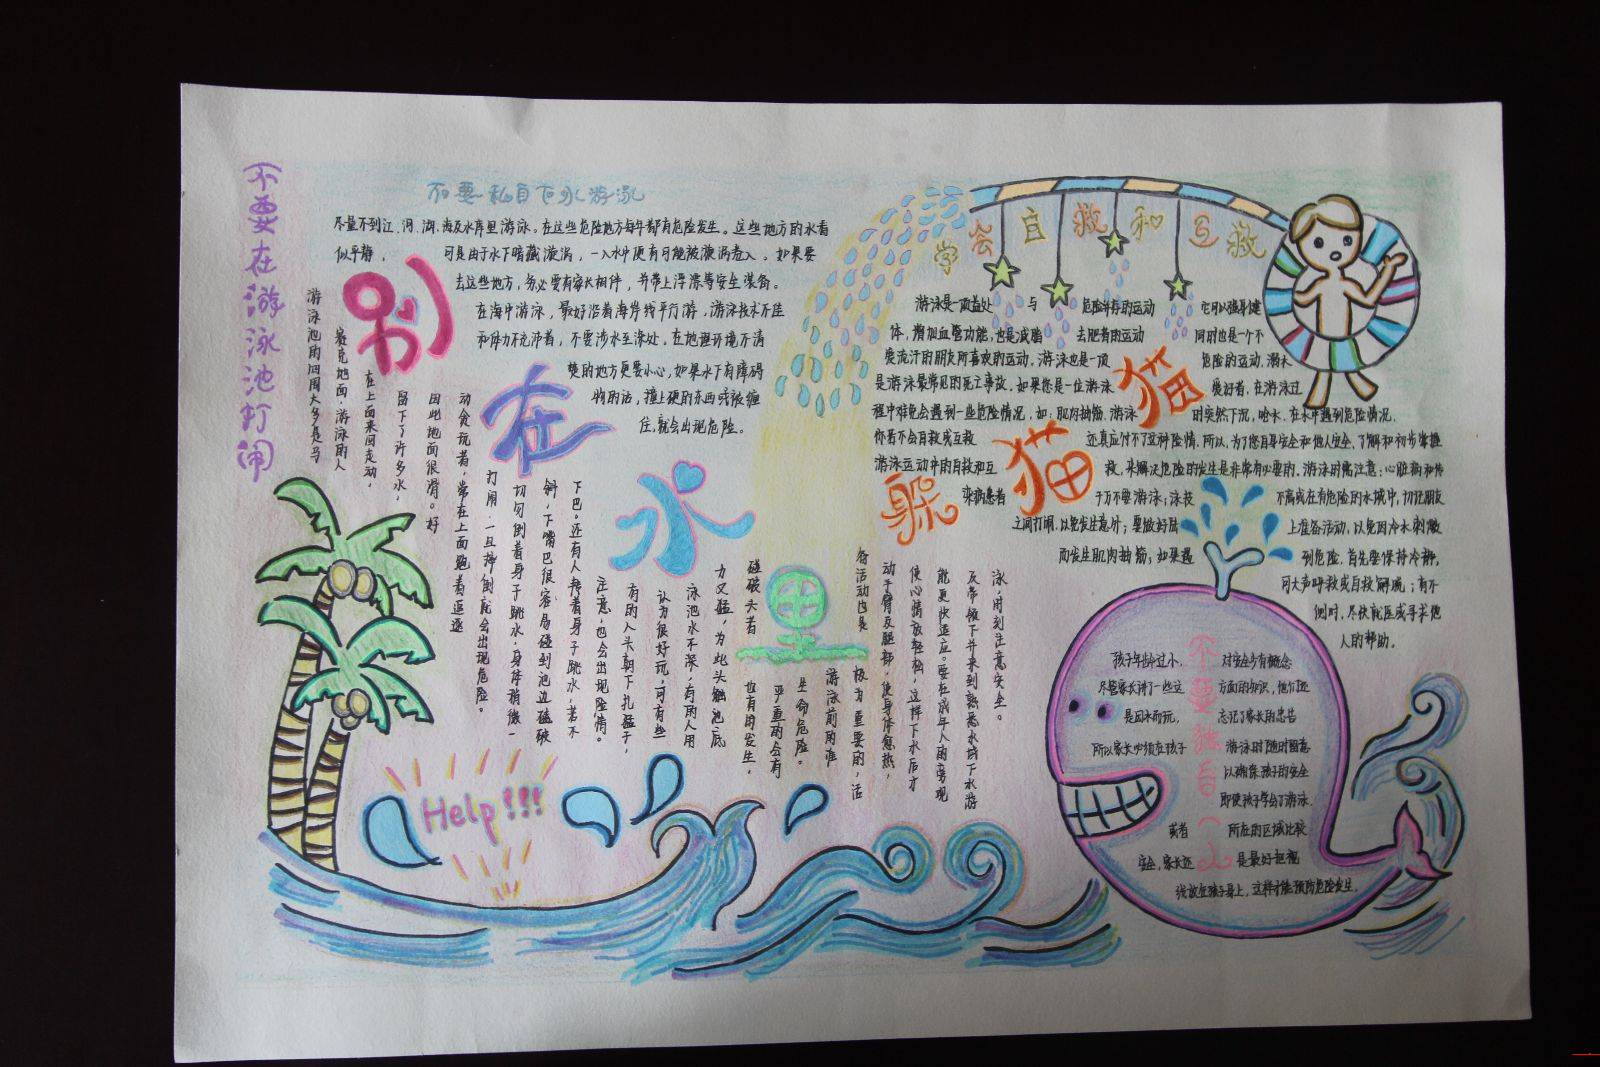 不要在游泳池打闹
不要私自下水游泳
尽量不到江、河、湖、海及水库里游泳。在这些危险地方每年都有危险发生。这些地方的水看
似平静，可是由于水下暗藏漩涡，一入水中便有可能被漩涡卷入。如果要
去这些地方，务必要有家长相伴，并带上浮漂等安全装备。
在海中游泳，最好沿着海岸线平行游，游泳技术不佳
和体力不充沛者，不要涉水至深处。在地理环境不清
楚的地方更要小心，如果水下有障碍
物的话，撞上硬的东西或被缠
住，就会出现危险。
别
在
水
里
躲
猫
猫
游泳池的四周大多是马
赛克地面，游泳的人
在上面来回走动，
留下了许多水，
因此地面很滑。好
动贪玩者，常在上面跑着逗
打闹，一旦摔倒就会出现危险。
切勿倒着身子跳水，身体稍微一
斜，下嘴巴很容易碰到池边磕破
下巴。还有人挎着身子跳水，若不
注意，也会出现险情。
有的人头朝下扎猛子，
认为很好玩，可有些
泳池水不深，有的人用
力又猛，为此头触池底
碰破头者
也有的发生，
严重的会有
生命危险。
游泳前的准
备活动也是
极为重要的，活
动手臂及腿部，使身体愈热，
使心情放轻松，这样下水后才
能更快适应。要在成年人的旁观
及带领下并来到熟悉水域下水游
泳，时刻注意安全。
学会自救和互救
游泳是一项益处与危险并存的运动，它可以强身健
体，增加血管功能，也是减脂去肥者的运动，同时也是一个不
爱流汗的朋友所喜欢的运动，游泳也是一项危险的运动，溺水
是游泳最常见的死亡事故，如果您是一位游泳爱好者，在游泳过
程中难免会遇到一些危险情况，如：肌肉抽筋、游泳时突然下沉，呛水，在水中遇到危险情况，
你若不会自救或互救还真应付不了这种险情。所以，为了您自身安全和他人安全，了解和初步掌握
游泳运动中的自救和互救，来解决危险的发生是非常有必要的。游泳时需注意：心脏病和传
染病患者千万不要游泳；泳技不高或在有危险的水域中，切记朋友
之间打闹，以免发生意外；要做好岸上准备活动，以免因冷水刺激
而发生肌肉抽筋；如果遇到危险，首先要保持冷静，
可大声呼救或自救解脱；有不
测时，尽快就医或寻求他
人的帮助。
不要独自下水
孩子年龄过小，对安全少有概念
尽管家长讲了一些这方面的知识，他们还
是因水而玩，忘记了家长的忠告
所以家长必须在孩子游泳时随时留意
以确保孩子的安全
即使孩子学会了游泳，
或者所在的区域比较
安全，家长还是最好把视
线放在孩子身上，这样才能预防危险发生。
Help!!!